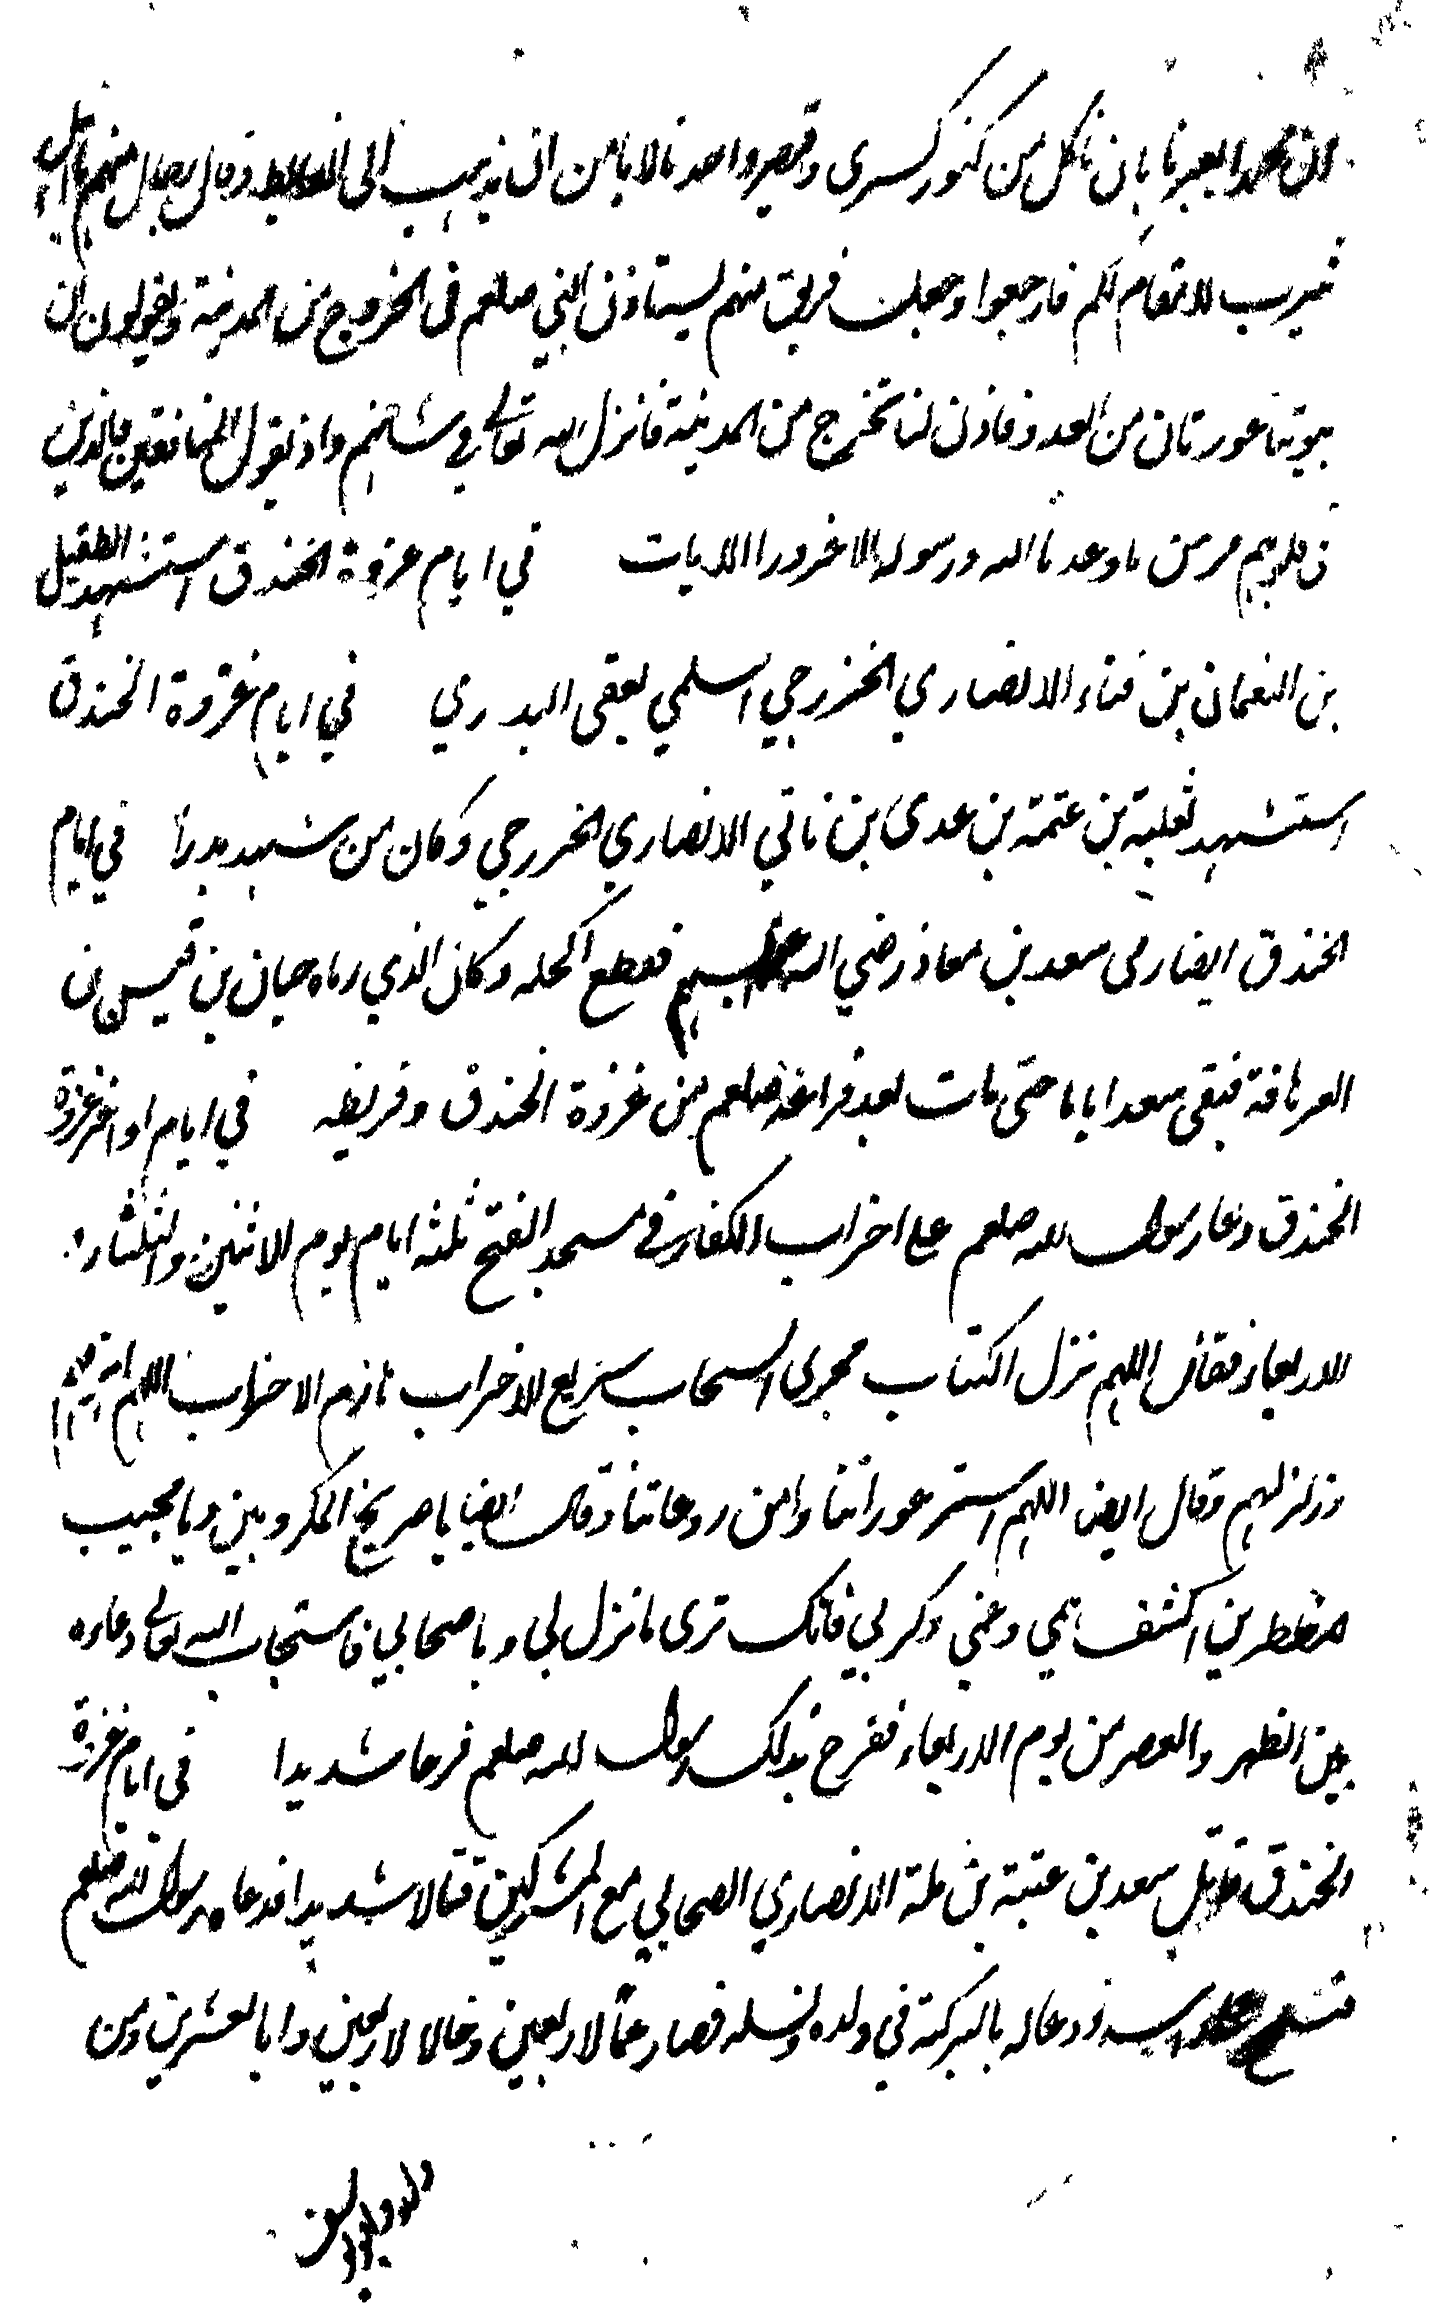 ان محمدا يعبرنا بان ناكل من كنوز كسرى وقيصر واحدنا لا يامن ان يذهب الى الغايط وقال رجال منهم يا اهل
يثرب لا مقام لكم فارجعوا وجعلت فريق منهم ليستاذن النبي صلعم فى الخروج من المدينة ويقولون ان
بيوتنا عورتان من العدو فاذن لنا نخرج من المدينة فانزل الله تعالى في شانهم واذ يقول المنافقين والذين
فى قلوبهم مرض ما وعدنا الله ورسوله الا غرورا الايات في ايام غزوة الخندق استشهد الطفيل
بن النعمان بن خنساء الانصاري الخزرجي السلمي العقبى البدري في ايام غزوة الخندق
استشهد ثعلبة بن عتمة بن عدى بن ناتي الانصاري الخزرجي وكان من شهد بدرا في ايام
الخندق ايضا رمى سعد بن معاذ رضي الله بسهم فقطع اكحله وكان الذي رماه حبان بن قيس بن
العرقافة فبقى سعد اياما حتى مات بعد فراغه صلعم من غزوة الخندق وقريظه في ايام اواخر غزوة
الخندق دعا رسول الله صلعم على احزاب الكفار في مسجد الفتح ثلثه ايام يوم الاثنين والثلثاء و
الاربعاء فقال اللهم منزل الكتاب مجرى السحاب سريع الاحزاب هازم الاحزاب اللهم اهزمهم
وزلزلهم وقال ايضا اللهم استر عوراتنا وامن روعاتنا وقال ايضا يا صريخ المكروبين ويا مجيب
مضطرين اكشف همي وغمي وكربي فانك ترى ما نزل بي وباصحابي فاستجاب الله تعالى دعاءه
بين الظهر والعصر من يوم الاربعاء ففرح بذلك رسول الله صلعم فرحا شديدا في ايام غزوة
الخندق قاتل سعد بن عتبة بن ملة الانصاري الصحابي مع المشركين قتالا شديدا فدعاه رسول الله صلعم
فمسح راسه ودعا له بالبركة في ولده ونسله فصار عما لاربعين وخالا لاربعين وابا لعشرين ومن